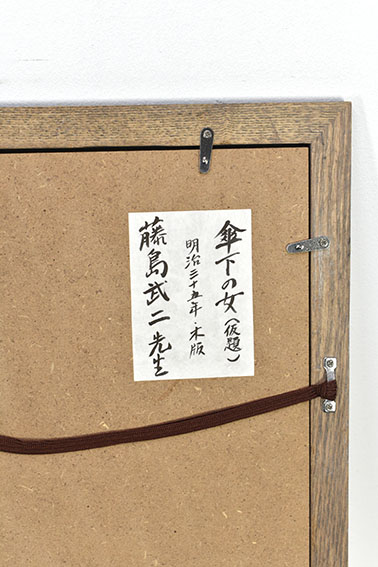 傘下の女（仮題）
明治三十五年・木版
藤島武二先生